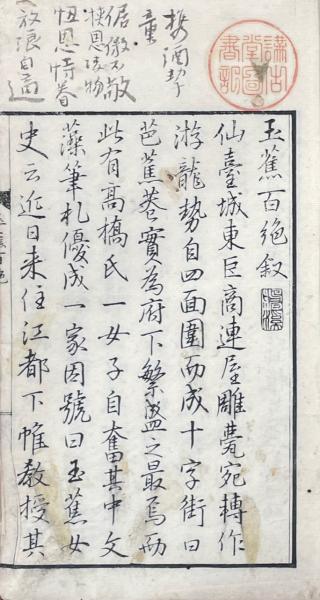 玉蕉百絶叙
仙臺城東巨商連屋雕甍宛轉作
游龍勢自四面圍而成十字街曰
芭蕉巷實為府下繁盛之最焉而
此有高橋氏一女子自奮其中文
藻筆札優成一家因號曰玉蕉女
史云近日来住江都下帷教授其
携酒挈
童
倨傲不敬
恃恩凌物
忸恩恃眷
放浪自適